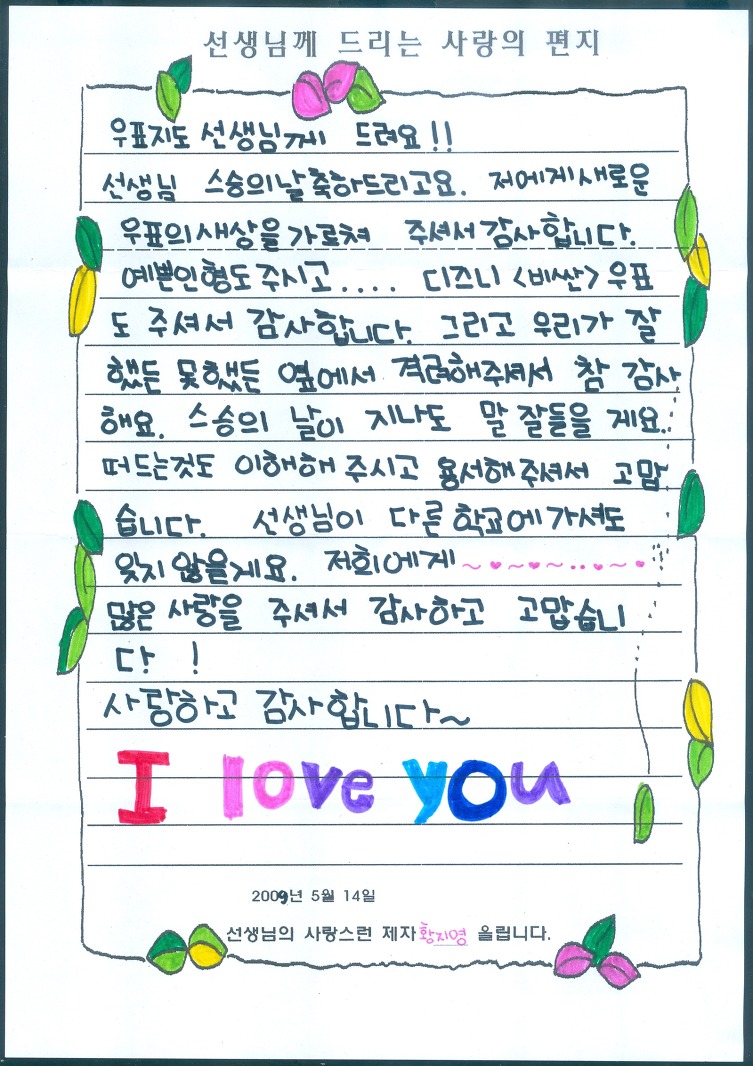 선생님께 드리는 사랑의 편지
우표지도 선생님께 드려요!!
선생님 스승의날 축하드리고요. 저에게 새로운
우표의 새상을 가르쳐 주셔서 감사합니다.
예쁜인형도 주시고.... 디즈니 <비싼> 우표
도 주셔서 감사합니다. 그리고 우리가 잘
했든 못했든 옆에서 격려해주셔서 참 감사
해요. 스승의 날이 지나도 말 잘들을 게요.
떠드는것도 이해해 주시고 용서해주셔서 고맙
습니다. 선생님이 다른 학교에 가셔도
잊지 않을게요. 저희에게
많은 사랑을 주셔서 감사하고 고맙습니
다 !
사랑하고 감사합니다~
I love you
2009년 5월 14일
선생님의 사랑스런 제자 황지영 올립니다.